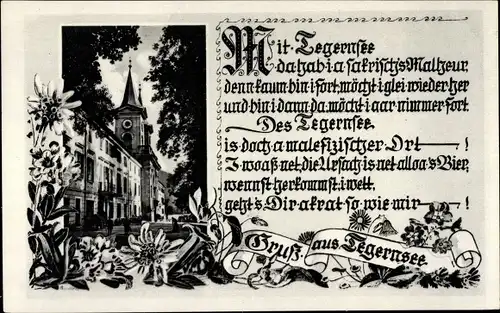 Mit Tegernsee
da hab i a sakrisch's Malheur,
denn kaum bin i fort, möcht i glei wieder her
und bin i dann da, möcht i aar nimmer fort.
Des Tegernsee
is doch a malefizischer Ort — !
I woaß net, die Ursach is net alloa's Bier,
wennst herkommst, i wett,
geht's Dir akrat so wie mir — !
Gruß aus Tegernsee